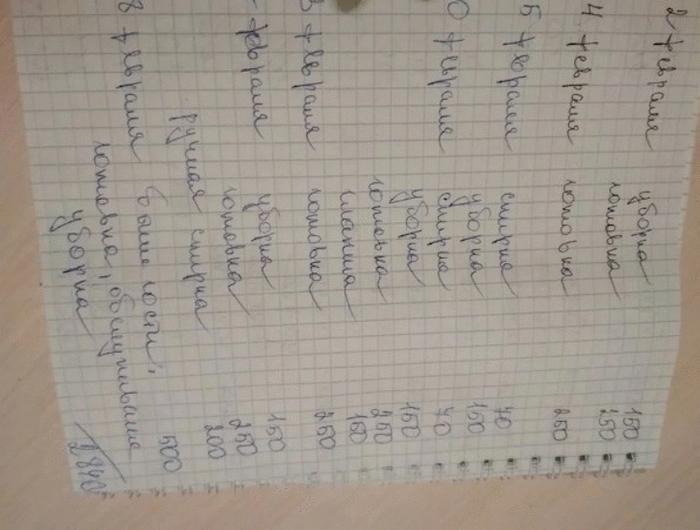 2 февраля уборка 150
готовка 250
4 февраля готовка 250
5 февраля стирка 70
уборка 150
0 февраля стирка 70
уборка 150
готовка 250
глажка 150
3 февраля готовка 250
февраля уборка 150
готовка 250
ручная стирка 200
8 февраля были гости, 500
готовка, обслуживание
уборка
2840